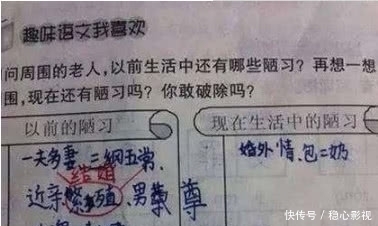 趣味语文我喜欢
问周围的老人,以前生活中还有哪些陋习?再想一想
围,现在还有陋习吗?你敢破除吗?
以前的陋习
现在生活中的陋习
一夫多妻.三綱五常.
结婚
近亲繁殖,男尊
尊
婚外情.包二奶
快传号/稳心影视